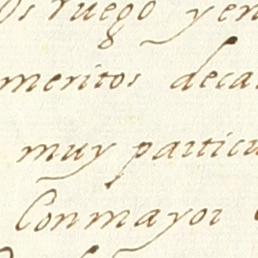 os ruego y en
meritos de ca
muy particu
Con mayor